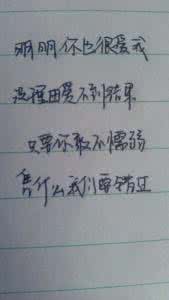 明明你也很爱我
没理由爱不到结果
只要你敢不懦弱
凭什么我们要错过